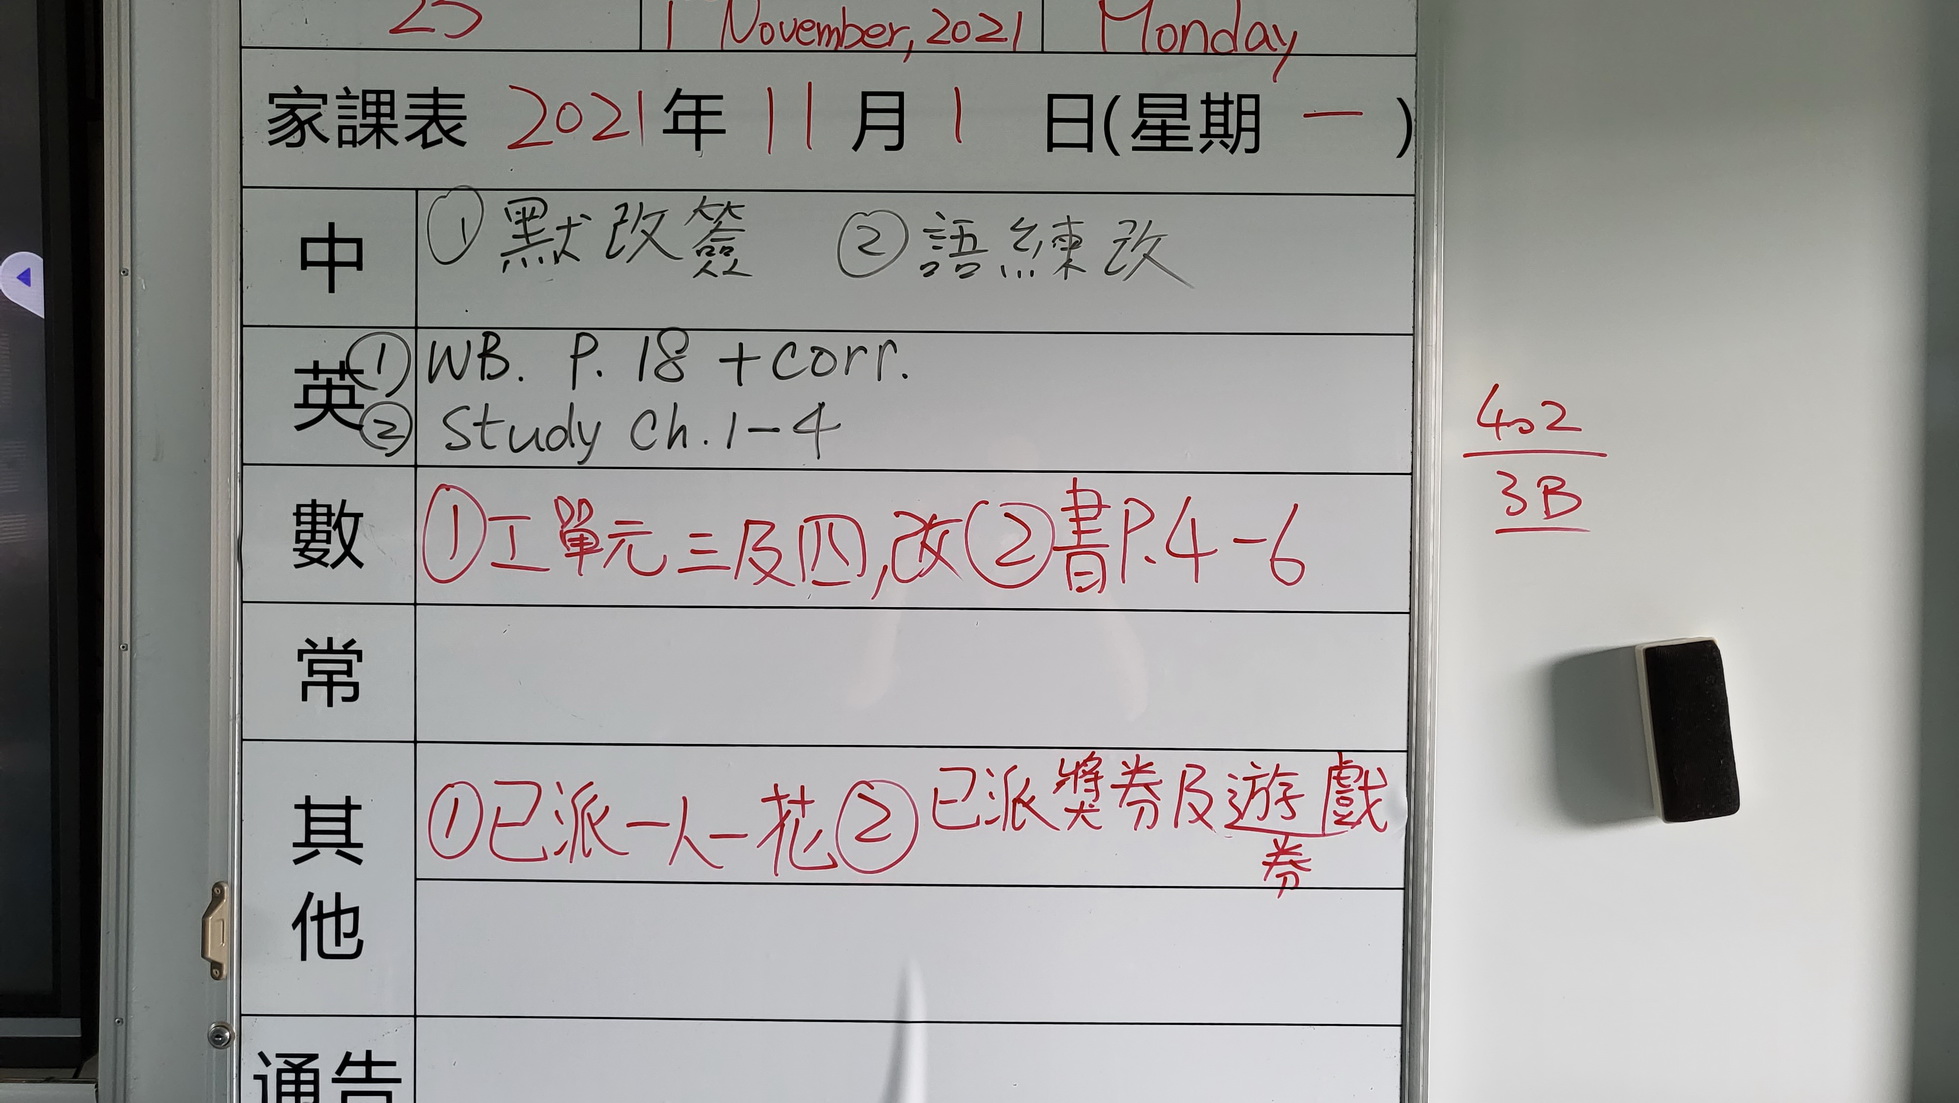 1 November, 2021 Monday
家課表 2021年 11月 1 日(星期 一 )
中 ①默改簽 ②語練改
英 ① WB. P. 18 + corr.
② Study Ch. 1-4
數 ①工單元三及四,改②書P.4-6
常
其他 ①已派一人一花②已派獎券及遊戲
券
通告
402
3B